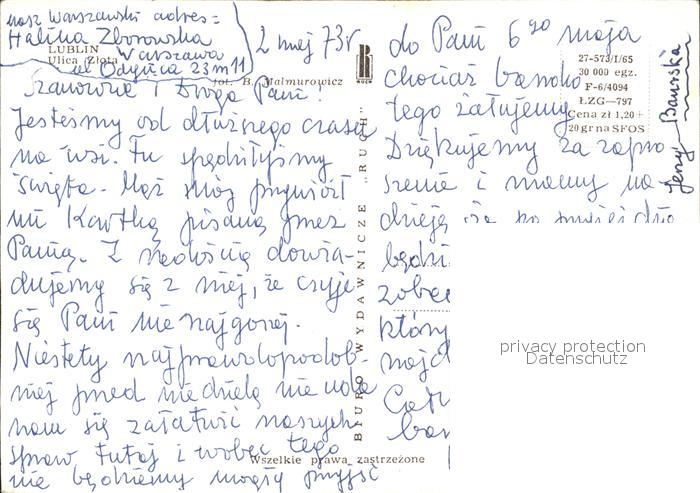 nasz Warszawski adres =
Halina Zborowska
Warszawa
ul Odyńca 23 m 11
LUBLIN
Ulica Złota
fot. B. Malmurowicz
2 maj 73r
Szanowna i Droga Pani!
Jesteśmy od dłuższego czasu
na wsi. Tu spędziłyśmy
święta. Mąż mój przywiózł
mi kartkę pisaną przez
Panią. Z radością dowia-
dujemy się z niej, że czuje
się Pani nie najgorzej.
Niestety najprawdopodob-
niej przed niedzielą nie uda
nam się załatwić naszych
spraw tutaj i wobec tego
nie będziemy mogły przyjść
BIURO WYDAWNICZE „RUCH"
RUCH
Wszelkie prawa zastrzeżone
do Pani 6go maja
chociaż bardzo
tego żałujemy
Dziękujemy za zapro-
szenie i mamy na-
dzieję
będzi
zobac
który
najd
Cał
bar
27-573/I/65
30 000 egz.
F-6/4094
ŁZG—797
Cena zł 1,20+
20 gr na SFOS
Jerzy
privacy protection
Datenschutz